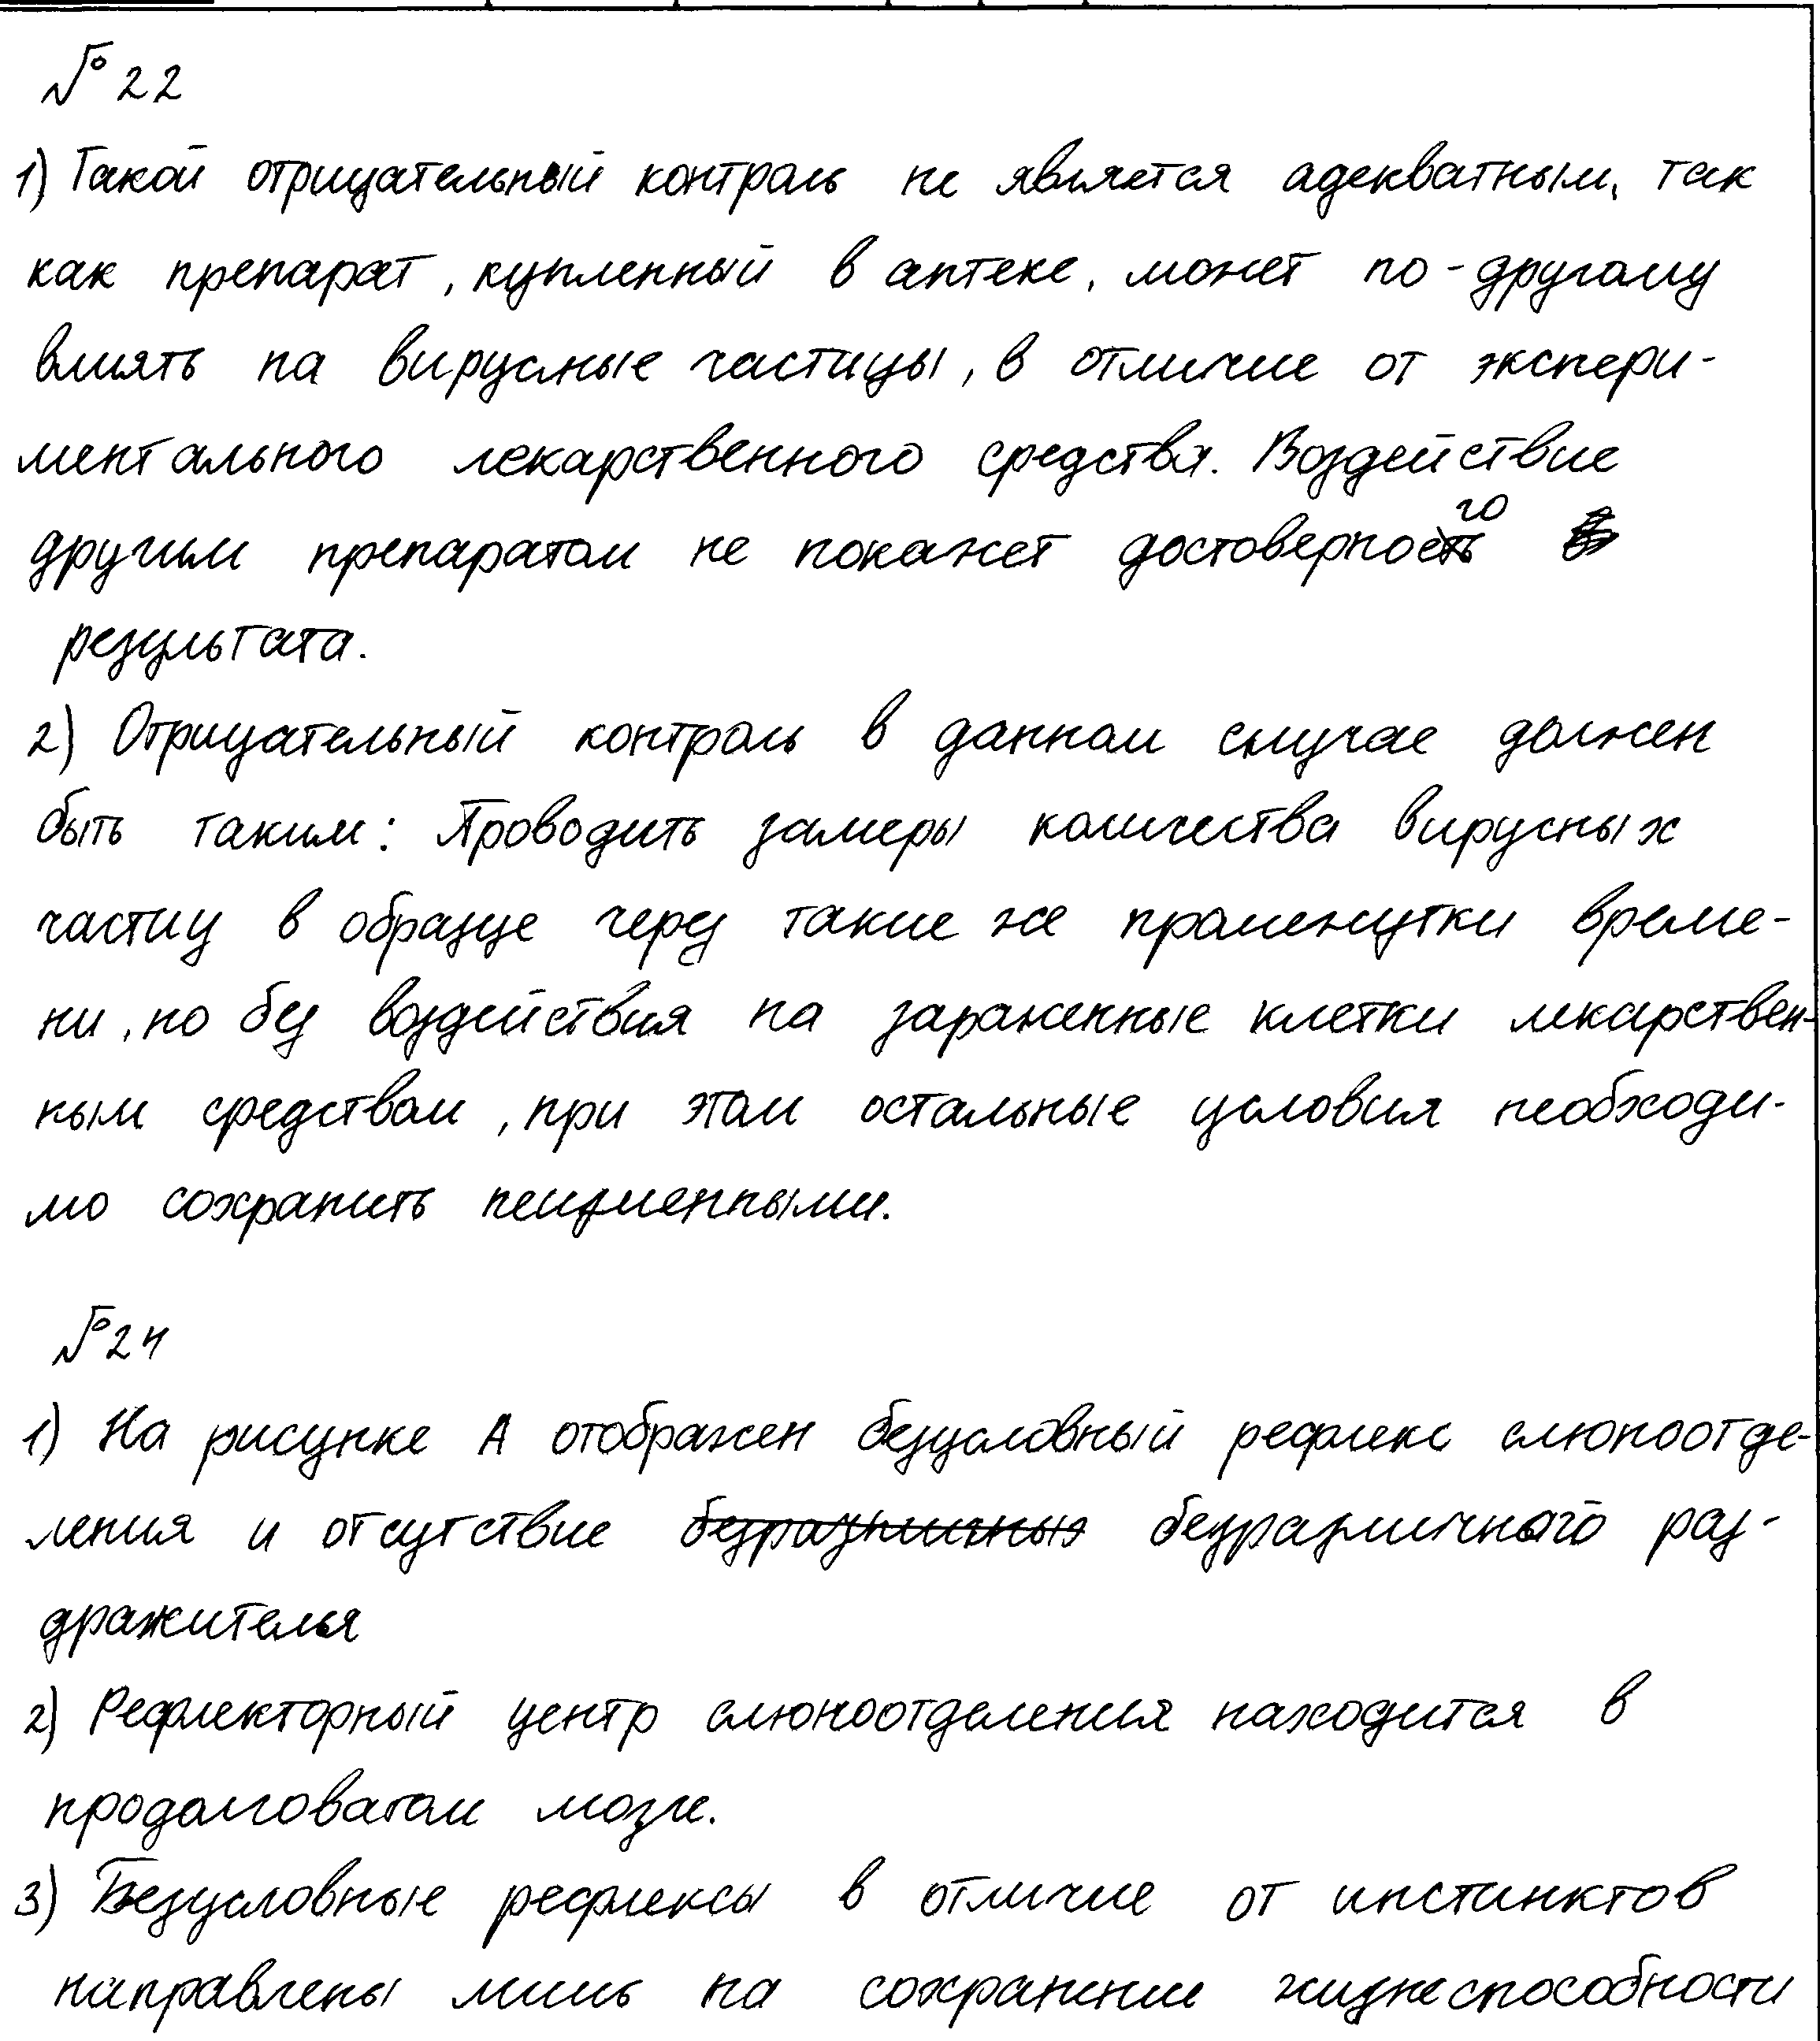 № 22
1) Такой отрицательный контроль не является адекватным, так
как препарат, купленный в аптеке, может по-другому
влиять на вирусные частицы, в отличие от экспери-
ментального лекарственного средства. Воздействие
другим препаратом не покажет достоверного
результата.
2) Отрицательный контроль в данном случае должен
быть таким: Проводить замеры количества вирусных
частиц в образце через такие же промежутки време-
ни, но без воздействия на зараженные клетки лекарствен-
ным средством, при этом остальные условия необходи-
мо сохранить неизменными.
№ 24
1) На рисунке А отображен безусловный рефлекс слюноотде-
ления и отсутствие безразличных безразличного раз-
дражителя
2) Рефлекторный центр слюноотделения находится в
продолговатом мозге.
3) Безусловные рефлексы в отличие от инстинктов
направлены лишь на сохранение жизнеспособности